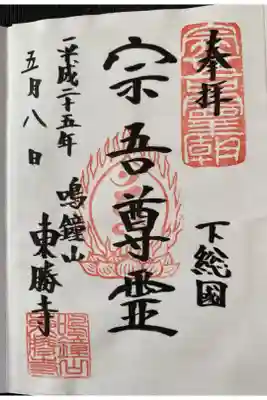 奉拝
下総國
宗吾尊霊
鳴鐘山
東勝寺
平成二十五年
五月八日